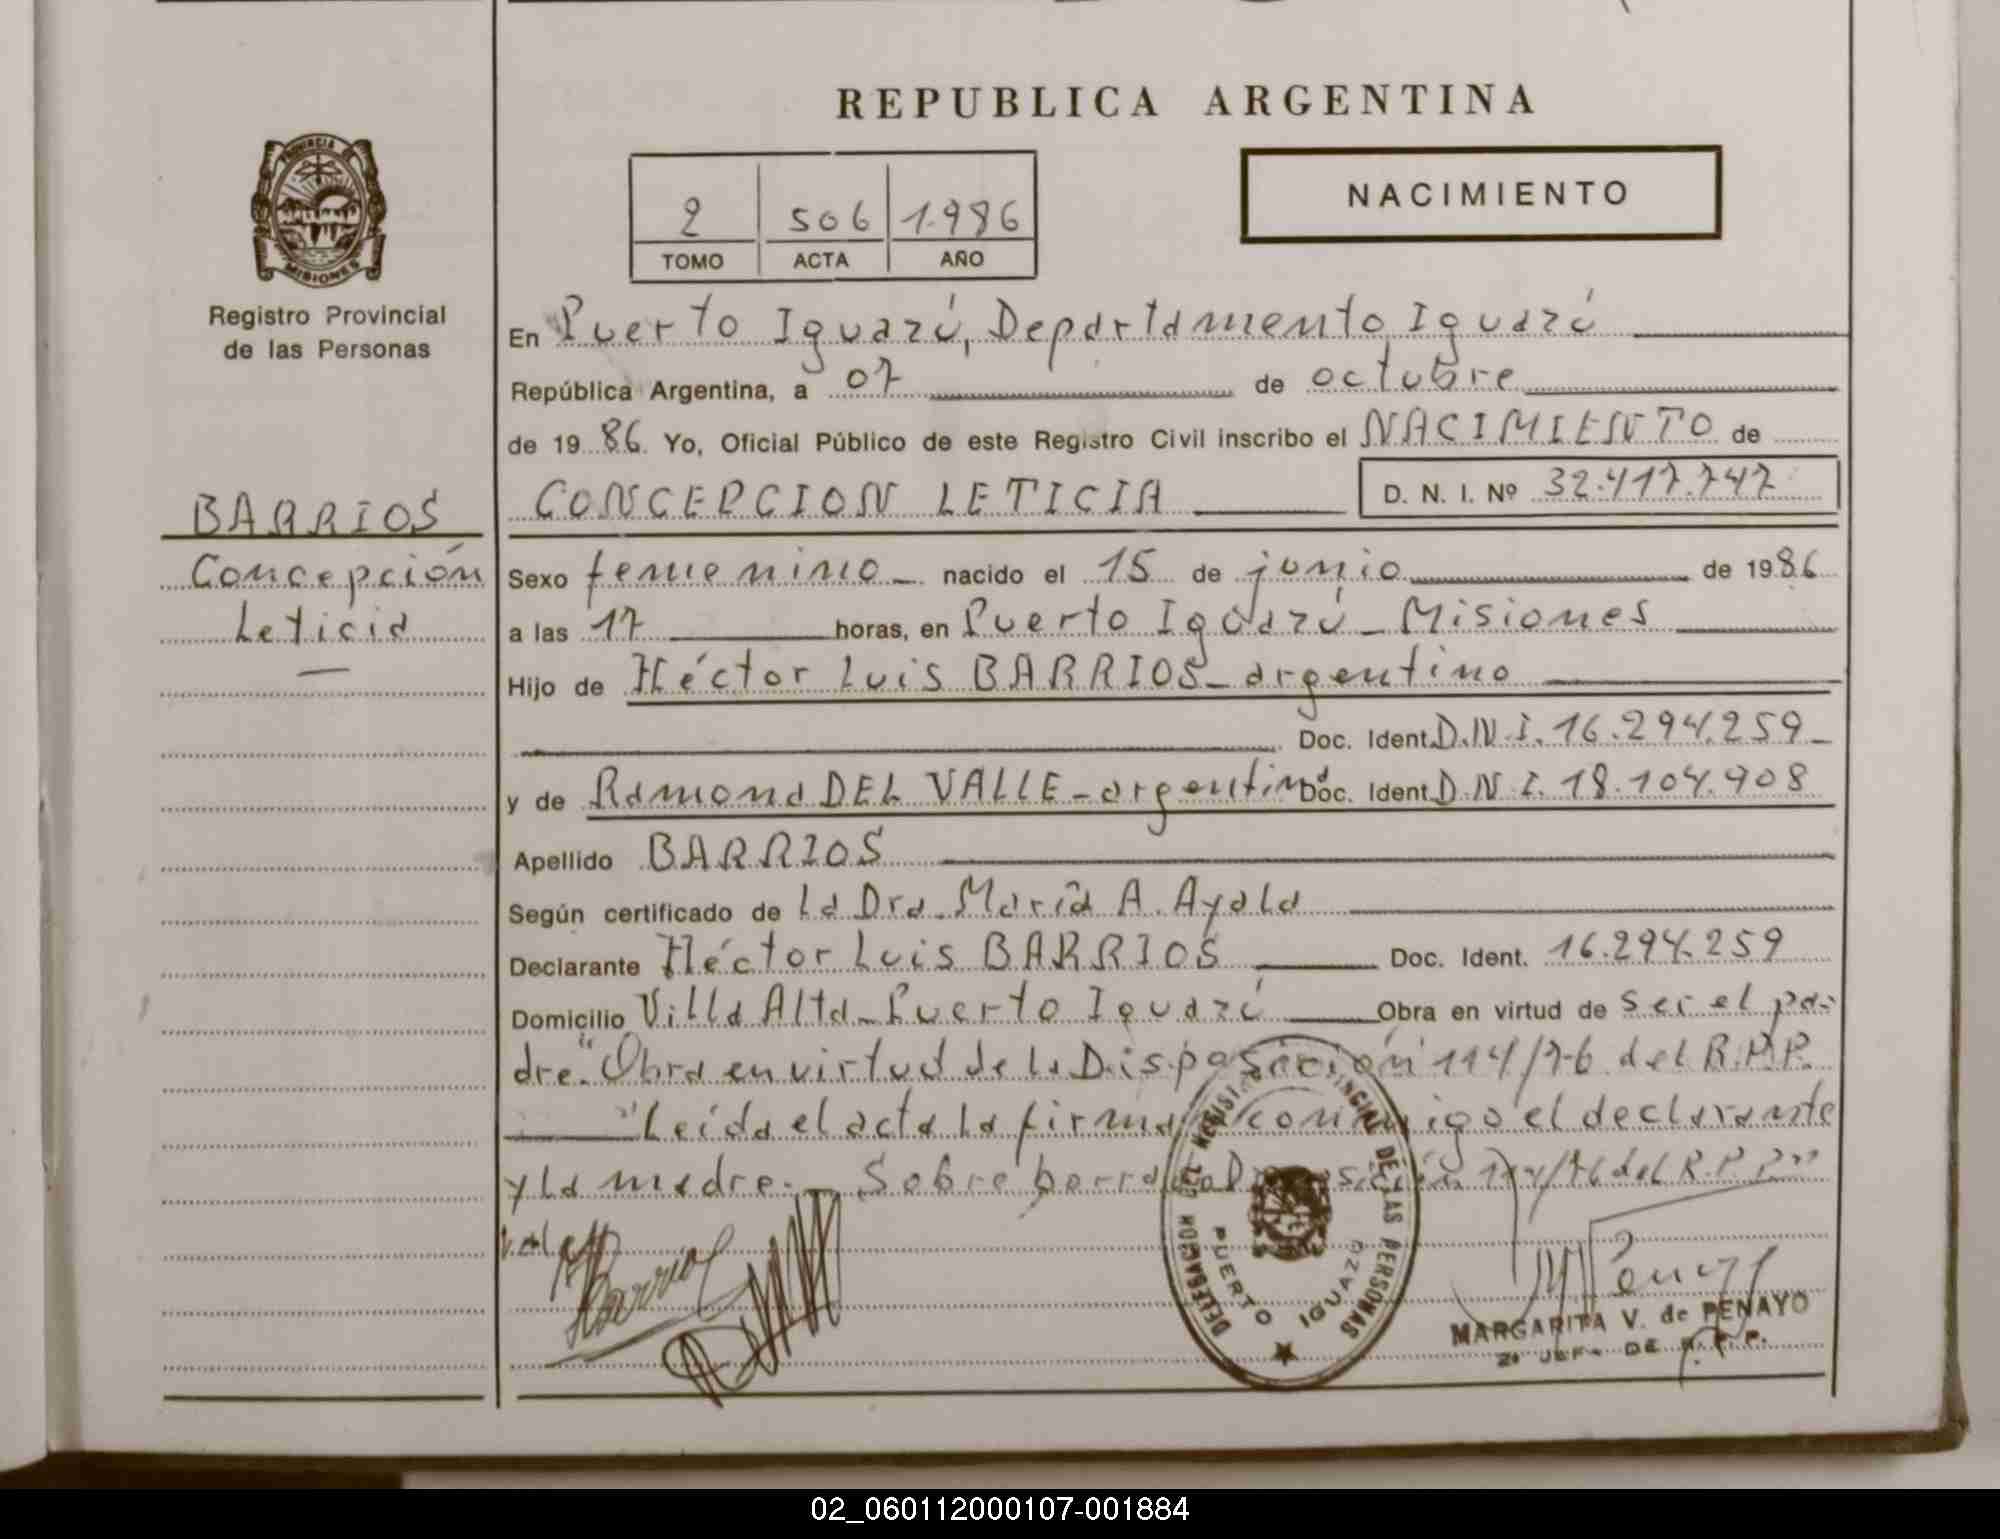 REPUBLICA ARGENTINA
PROVINCIA DE MISIONES
Registro Provincial
de las Personas
NACIMIENTO
2 506 1.986
TOMO ACTA AÑO
En Puerto Iguazú, Departamento Iguazú
República Argentina, a 07 de octubre
de 19 86. Yo, Oficial Público de este Registro Civil inscribo el NACIMIENTO de
CONCEPCION LETICIA D. N. I. Nº 32.417.747
BARRIOS
Concepción
Leticia
Sexo femenino nacido el 15 de junio de 1986
a las 17 horas, en Puerto Iguazú - Misiones
Hijo de Héctor Luis BARRIOS - argentino
Doc. Ident. D.N.I. 16.294.259 -
y de Ramona DEL VALLE - argentina Doc. Ident. D.N.I. 18.104.908
Apellido BARRIOS
Según certificado de la Dra. María A. Ayala
Declarante Héctor Luis BARRIOS Doc. Ident. 16.294.259
Domicilio Villa Alta - Puerto Iguazú Obra en virtud de ser el pa-
dre. "Obra en virtud de la Disposición 114/76 del R.P.P.
"Leída el acta la firma conmigo el declarante
y la madre. - Sobre borrado Disposición 114/76 del R.P.P."
Vale
Barrios
DELEGACION DEL REGISTRO PROVINCIAL DE LAS PERSONAS
PUERTO IGUAZU
MARGARITA V. de PENAYO
2ª JEFA DE R.P.P.
02_060112000107-001884